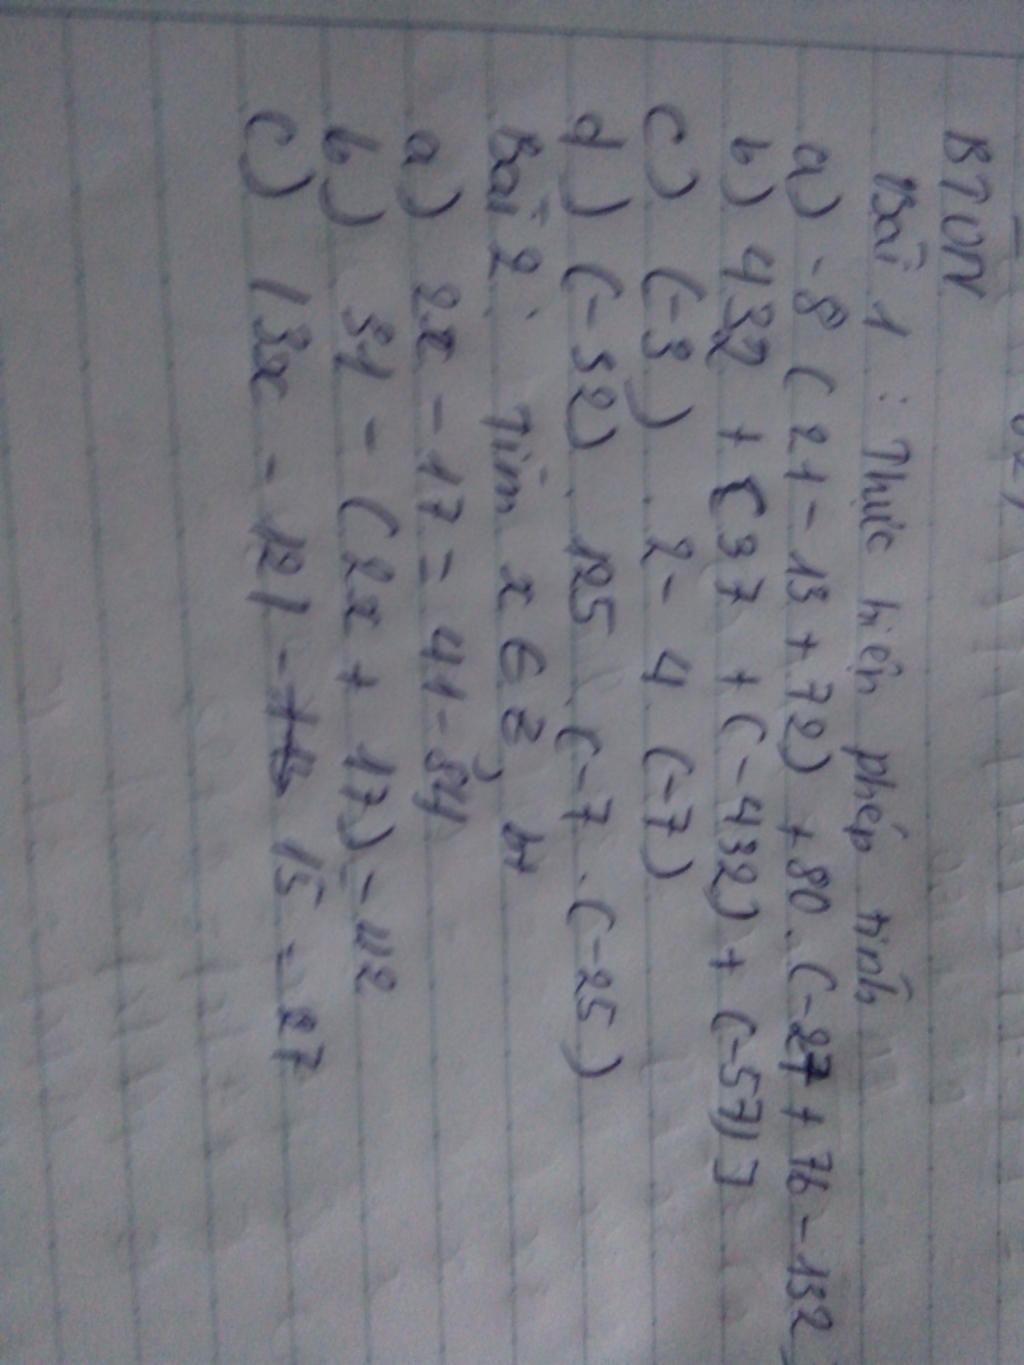 BTVN
Bài 1 : Thực hiện phép tính
a) -8 ( 21 - 13 + 72) + 80 . (-27 + 76 - 132
b) 432 + [ 37 + (-432) + (-57)]
c) (-3) . 2 - 4 (-7)
d) (-32) . 125 . (-7 . (-25)
Bài 2 : Tìm x ∈ Z, bt
a) 2x - 17 = 41 - 84
b) 31 - (2x + 17) = 42
c) |3x - 12| - 15 = 27